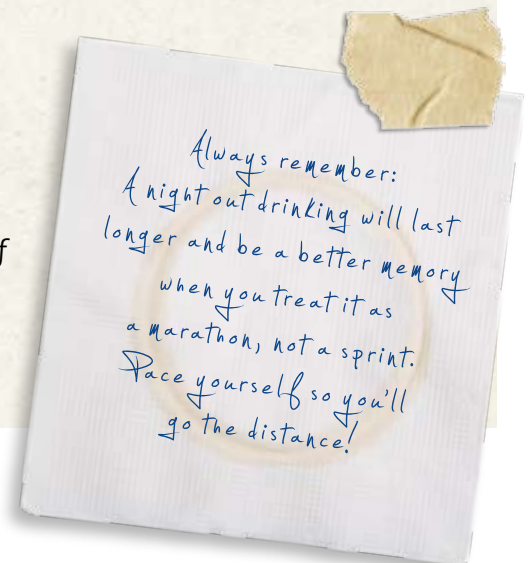 f
Always remember:
A night out drinking will last
longer and be a better memory
when you treat it as
a marathon, not a sprint.
Pace yourself so you'll
go the distance!